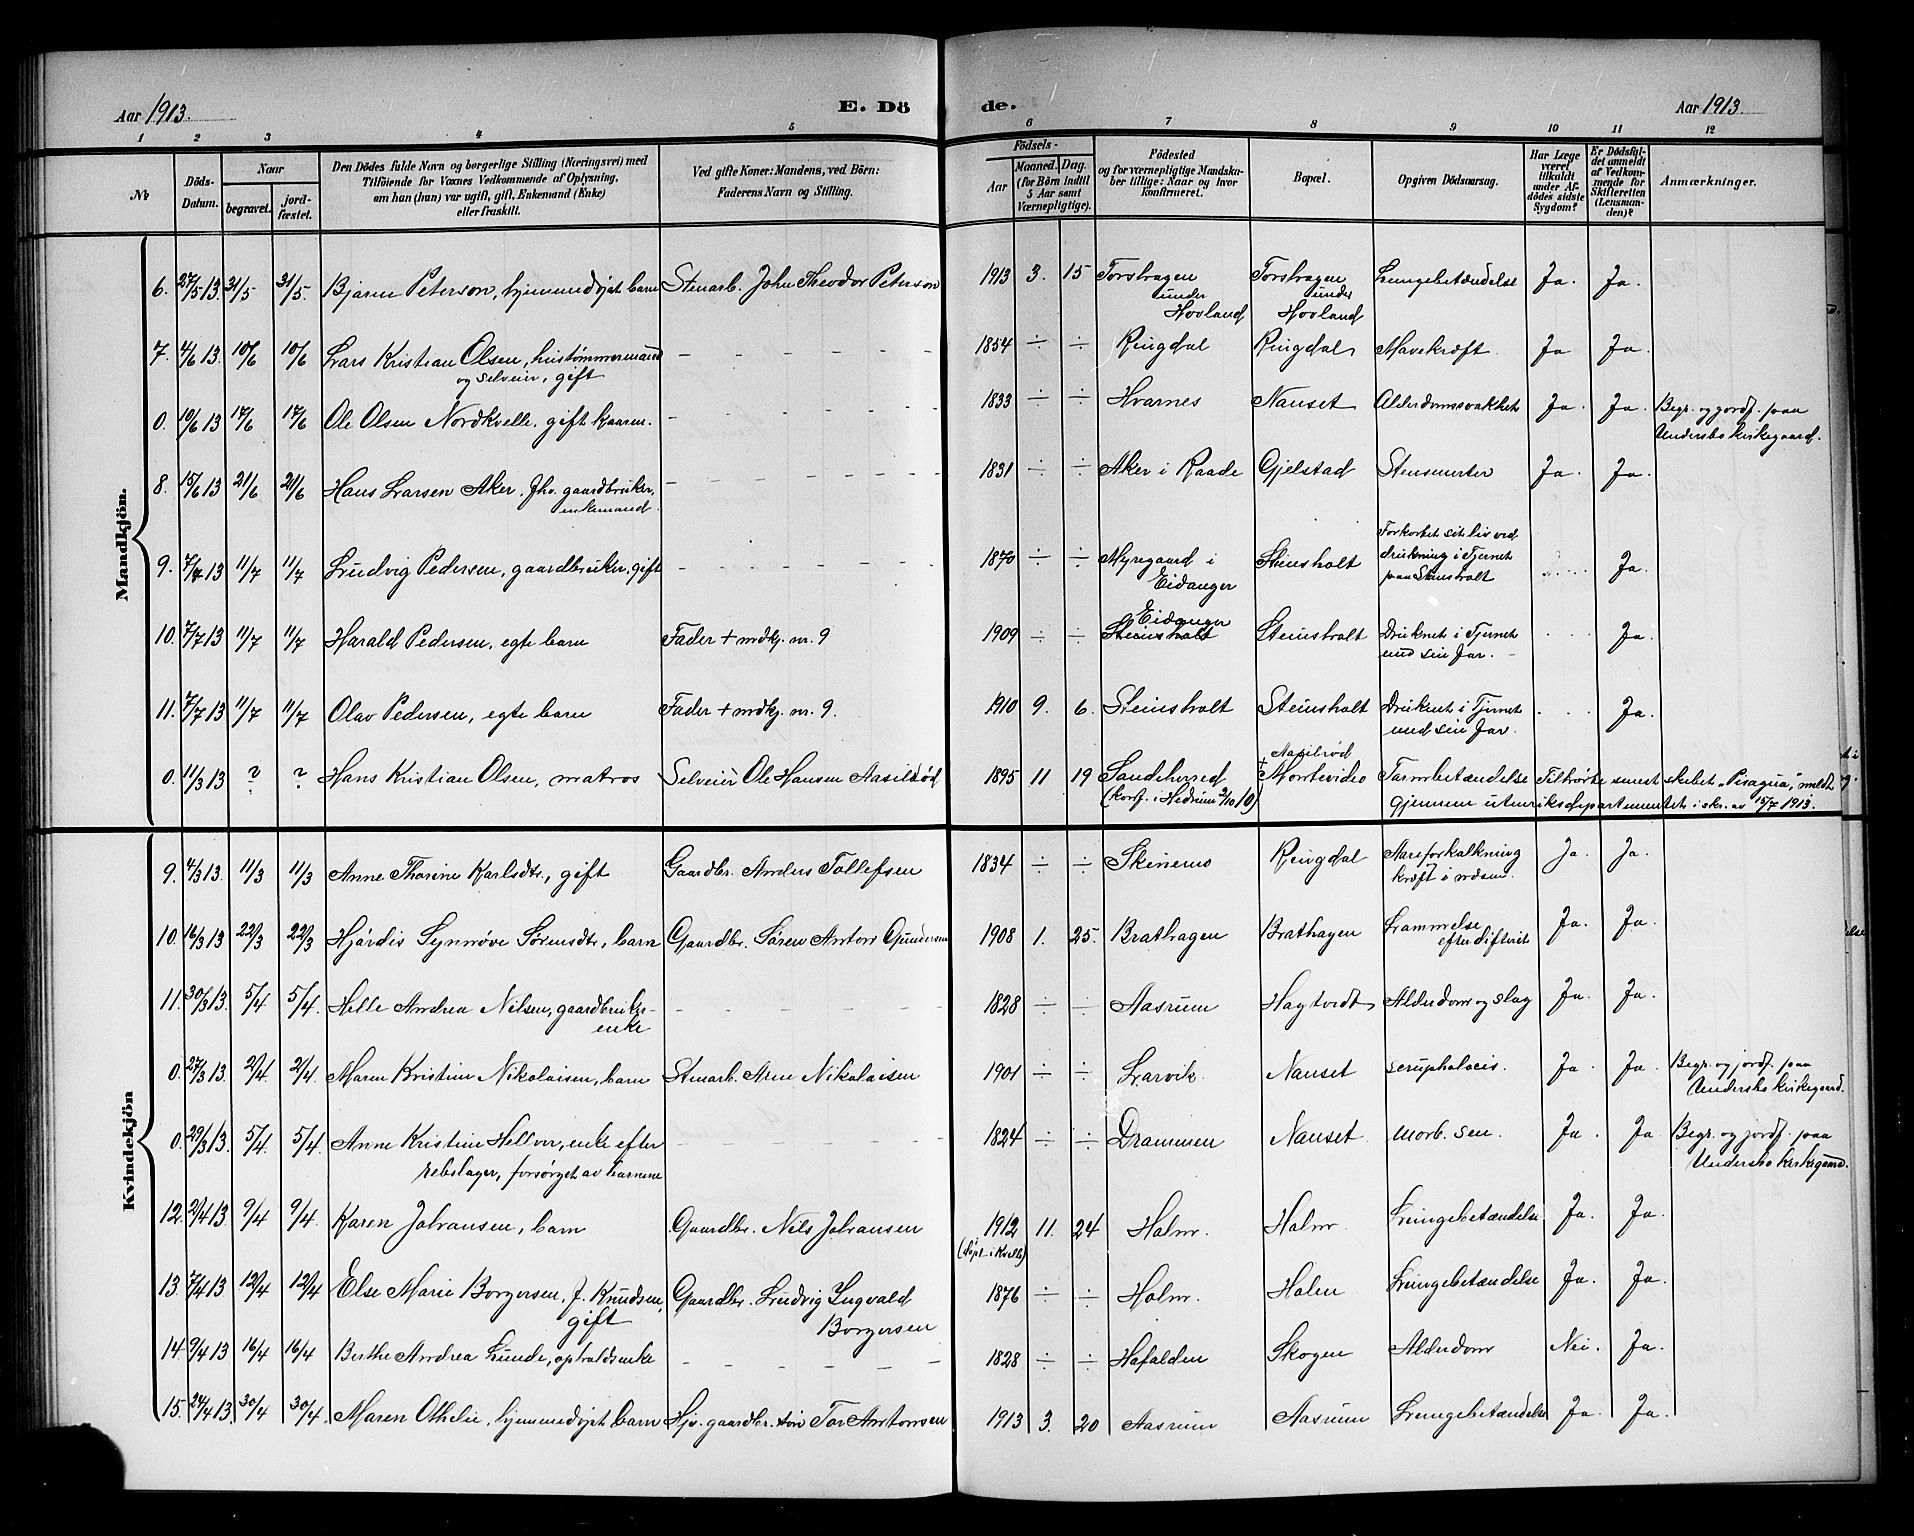 Aar 1913. E. Dö de. Aar 1913
1 2 3 4 5 6 7 8 9 10 11 12
No
Döds-Datum.
Naar begravet. jord-fæstet.
Den Dödes fulde Navn og borgerlige Stilling (Næringsvei) med
Tilföiende for Voxnes Vedkommende af Oplysning,
om han (hun) var ugift, gift, Enkemand (Enke)
eller fraskilt.
Ved gifte Koner: Mandens, ved Börn:
Faderens Navn og Stilling.
Födsels-
Aar Maaned. Dag.
(for Börn indtil 5 Aar samt Værnepligtige).
Födested
og for værnepligtige Mandskaber tillige: Naar og hvor konfirmeret.
Bopæl.
Opgiven Dödsaarsag.
Har Læge været tilkaldt under Afdödes sidste Sygdom?
Er Dödsfaldet anmeldt af Vedkommende for Skifteretten (Lensmanden)?
Anmærkninger.
Mandkjön.
6. 27/5 13 31/5 31/5 Bjarne Peterson, hjemmedøpt barn Stenarb. John Theodor Peterson 1913 3. 15 Torshagen under Hovland Torshagen under Hovland Lungebetændelse Ja. Ja.
7. 4/6 13. 10/6 10/6 Lars Kristian Olsen, hustømmermand
og selveier, gift
1854 ÷ ÷ Ringdal Ringdal Mavekræft. Ja Ja
0. 10/6 13 17/6 17/6 Ole Olsen Nordkvelle, gift 1833 ÷ ÷ Hvarnes Nanset Alderdomssvakhet Ja. Ja. Begr. og jordf. paa
Undersbo kirkegaard.
8. 15/6 13 21/6 21/6 Hans Larsen Aker, fhv. gaardbruker,
enkemand.
1831 ÷ ÷ Aker i Raade Gjelstad Stensmerter Ja. Ja.
9. 7/7 13 11/7 11/7 Ludvig Pedersen, gaardbruker, gift 1870 ÷ ÷ Myregaard i
Eidanger
Steinsholt
Forkortet sit liv ved
drukning i Tjernet
paa Steinsholt
Ja.
10. 7/7 13 11/7 11/7 Harald Pedersen, egte barn Fader + mdkj. nr. 9 1909 ÷ ÷ Eidanger
Steinsholt
Steinsholt Druknet i Tjernet
med sin Far.
Ja.
11. 7/7 13 11/7 11/7 Olav Pedersen, egte barn Fader + mdkj. nr. 9. 1910 9. 6. Steinsholt Steinsholt Druknet i Tjernet
med sin Far.
Ja.
0. 11/3 13 ? ? Hans Kristian Olsen, matros Selveier Ole Hansen Aasilrød 1895 11 19 Sandeherred
(konf. i Hedrum 2/10 10)
Aasilrød
+ Montevideo
Tarmbetændelse Tilhørte senest skibet "Pisagua", meldt
gjennem utenriksdepartementet i skr. av 15/7 1913.
Kvindekjön
9. 4/3 13. 11/3 11/3 Anne Thorine Karlsdtr., gift Gaardbr. Anders Tollefsen 1834 ÷ ÷ Skinemo Ringdal Aareforkalkning
kræft i næsen.
Ja. Ja.
10. 16/3 13 22/3 22/3 Hjørdis Synnøve Sørensdtr, barn Gaardbr. Søren Anton Gundersen 1908 1. 25. Brathagen Brathagen Lammelse
efter difterit
Ja. Ja.
11. 30/3 13. 5/4 5/4 Helle Andrea Nilsen, gaardbruker-
enke
1828 ÷ ÷ Aasrum Hagtvedt Alderdom og slag Ja. Ja.
0. 27/3 13. 2/4. 2/4. Maren Kristine Nikolaisen, barn Stenarb. Arne Nikolaisen 1901 ÷ ÷ Larvik. Nanset Ja. Ja. Begr. og jordf. paa
Undersbo kirkegaard.
0. 29/3 13. 5/4. 5/4. Anne Kristine Hellver, enke efter
rebslager, forsørget av barnene
1824 ÷ ÷ Drammen Nanset. morb. sen. Ja. Ja Begr. og jordf. paa
Undersbo kirkegaard.
12. 2/4 13. 9/4 9/4. Karen Johansen, barn Gaardbr. Nils Johansen 1912 11. 24
(døpt i Kvelle)
Holm. Holm. Lungebetændelse Ja. Ja.
13. 7/4 13 12/4 12/4 Else Marie Borgersen, f. Knudsen,
gift
Gaardbr. Ludvig Ingvald
Borgersen
1876 ÷ ÷ Holm. Holm Lungebetændelse Ja. Ja.
14. 9/4 13 16/4 16/4 Berthe Andrea Lunde, opholdsenke 1828 ÷ ÷ Hafalden Skogen Alderdom Nei. Ja.
15. 24/4 13. 30/4 30/4 Maren Othelie, hjemmedøpt barn Hjv. gaardbr. søn Tor Antonsen 1913 3. 20 Aasrum Aasrum Lungebetændelse Ja. Ja.